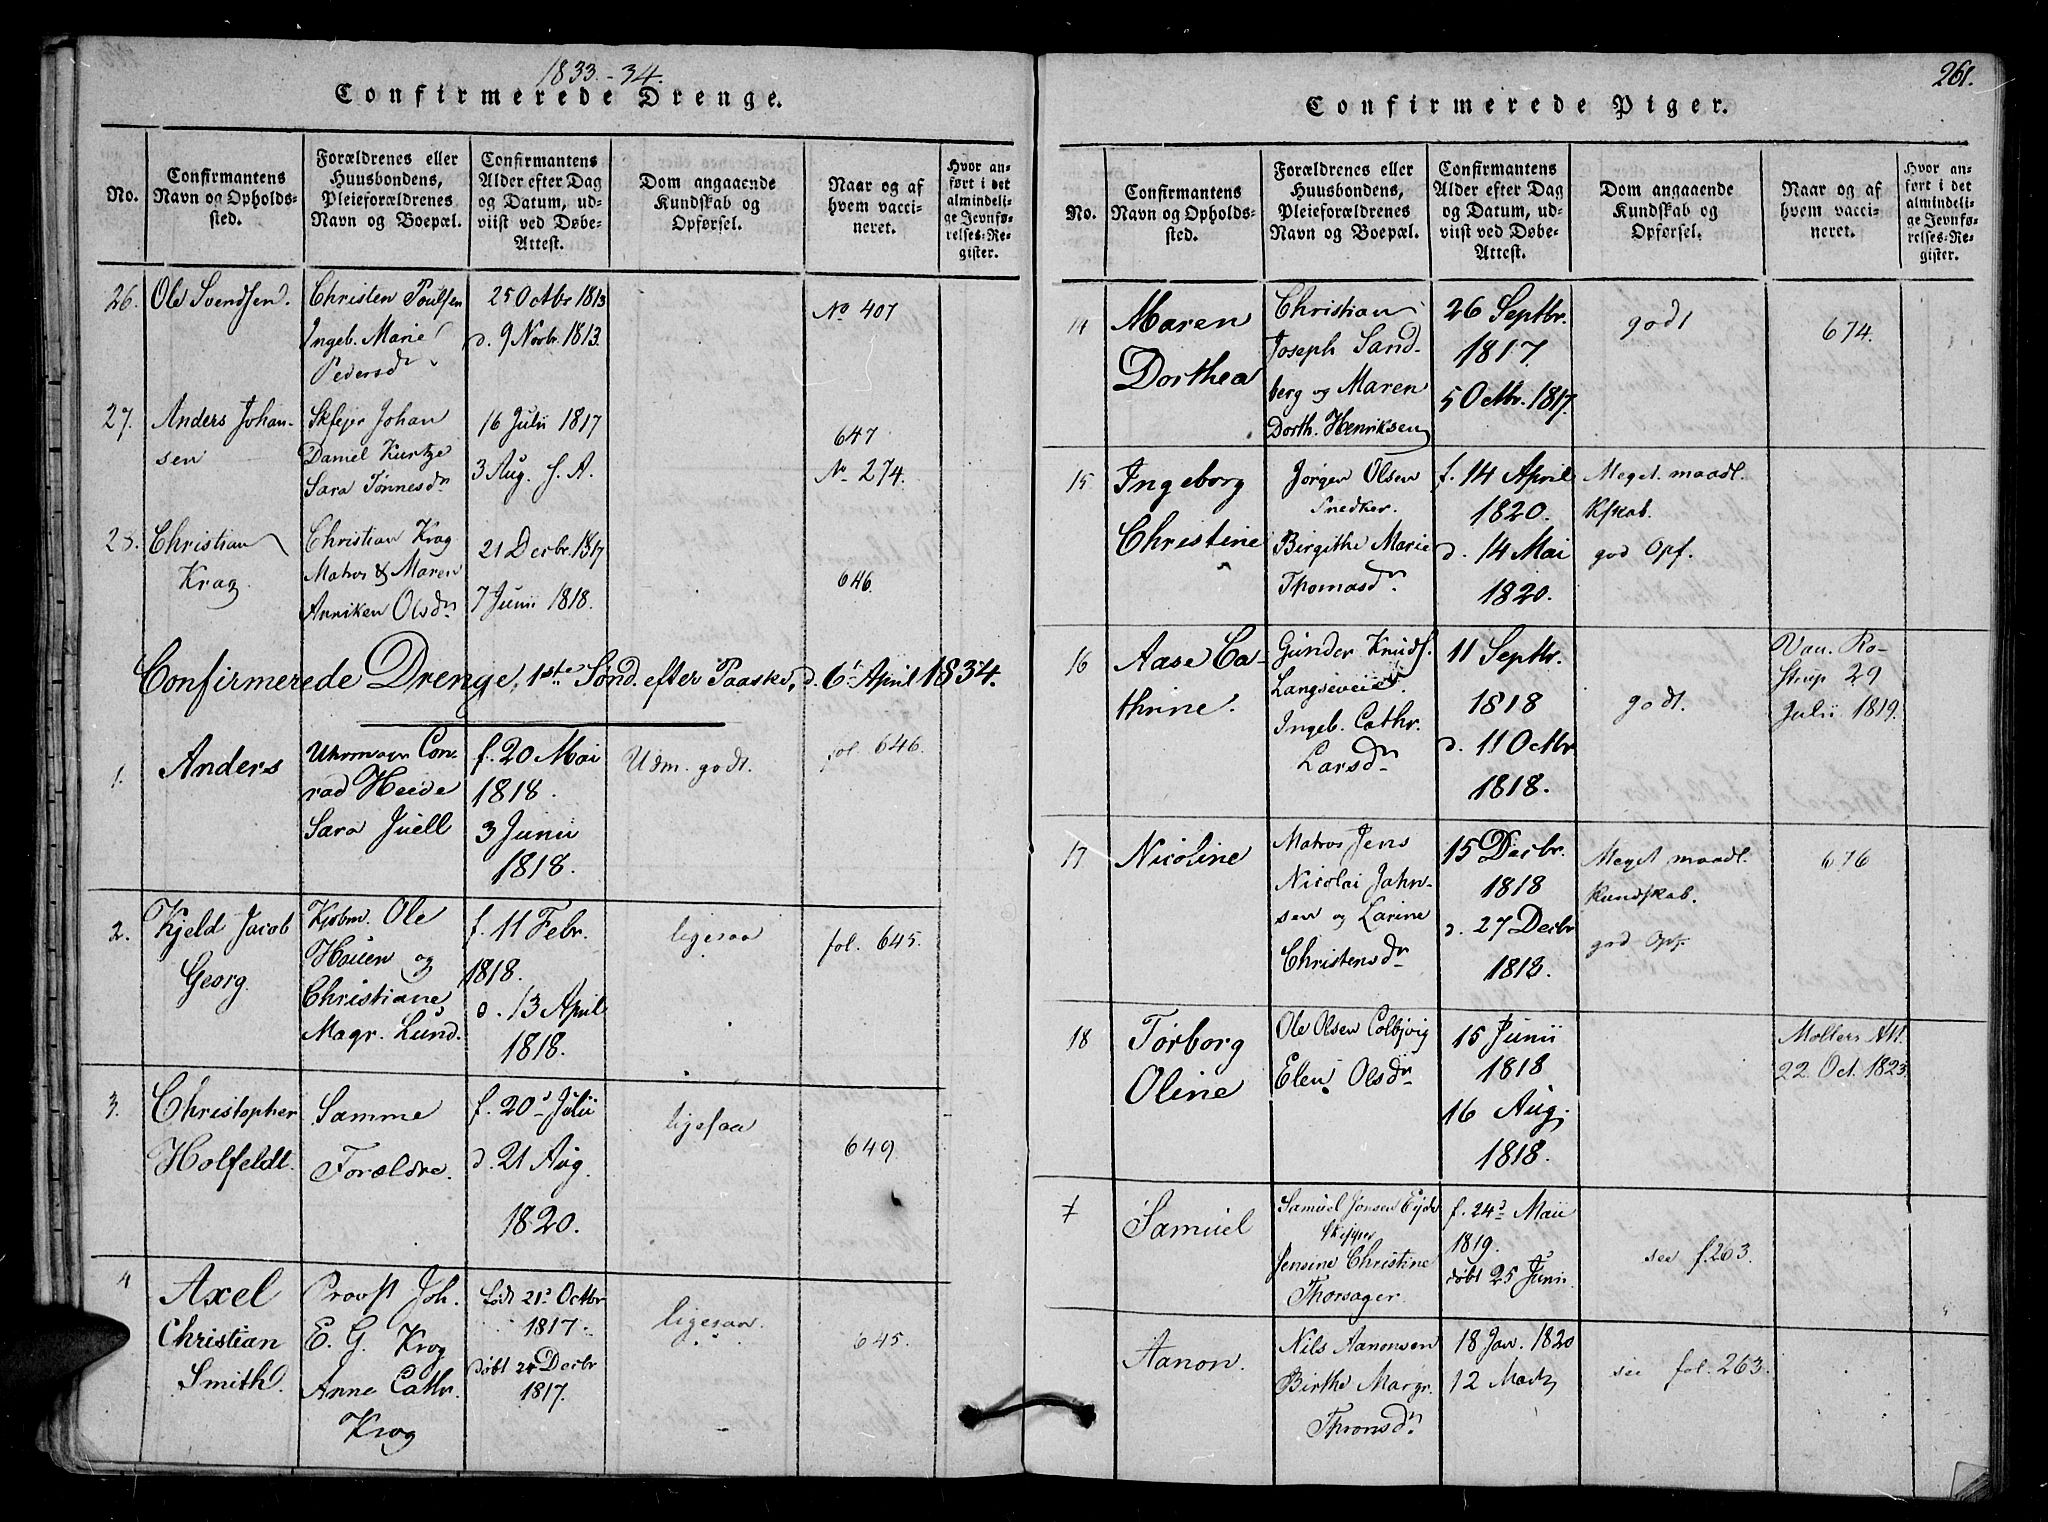 1833.-34.
Confirmerede Drenge.
No.
Confirmantens
Navn og Opholds-
sted.
Forældrenes eller
Huusbondens,
Pleieforældrenes
Navn og Boepæl.
Confirmantens
Alder efter Dag
og Datum, ud-
viist ved Døbe-
Attest.
Dom angaaende
Kundskab og
Opførsel.
Naar og af
hvem vacci-
neret.
Hvor an-
ført i det
almindeli-
ge Jevnfø-
relses-Re-
gister.
26.
Ole Svendsen.
Christen Poulsen
Ingeb. Marie
Pedersdr
25 Octbr 1813
d. 9 Novbr. 1813.
No 407
27.
Anders Johan-
sen
Skfejer Johan
Daniel Kurtze
Sara Tønnesdr
16 Julii 1817
3 Aug. s. A.
647
No 274.
28.
Christian
Krag
Christian Krag
Matros & Maren
Anniken Olsdr
21 Decbr. 1817
7 Junii 1818.
646.
Confirmerede Drenge, 1ste Sønd. efter Paaske, d. 6t April 1834.
1.
Anders
Uhrmager Con-
rad Heide
Sara Juell
f. 20 Mai
1818.
3 Junii
1818.
Udm. godt.
fol. 646.
2.
Kjeld Jacob
Georg
Kjøbm. Ole
Hauen og
Christiane
Magr. Lund.
f. 11 Febr.
1818.
d. 13 April
1818.
ligesaa
fol. 645.
3.
Christopher
Holfeldt.
Samme
Forældre.
f. 20 Julii
d. 21 Aug.
1820.
ligesaa
649.
4
Axel
Christian
Smith.
Provst Joh.
E. G. Krog
Anne Cathr.
Krog
født 21 Octbr
1817
døbt 24 Decbr
1817.
ligesaa.
645.
261.
Confirmerede Piger.
No.
Confirmantens
Navn og Opholds-
sted.
Forældrenes eller
Huusbondens,
Pleieforældrenes
Navn og Boepæl.
Confirmantens
Alder efter Dag
og Datum, ud-
viist ved Døbe-
Attest.
Dom angaaende
Kundskab og
Opførsel.
Naar og af
hvem vacci-
neret.
Hvor an-
ført i det
almindeli-
ge Jevnfø-
relses-Re-
gister.
14
Maren
Dorthea
Christian
Joseph Sand-
berg og Maren
Dorth. Henriksen
26 Septbr.
1817.
5 Octbr. 1817.
godt
674.
15
Ingeborg
Christine
Jørgen Olsen
Snedker.
Birgithe Marie
Thomasdr.
f. 14 April
1820.
d. 14 Mai
1820.
Meget maadl.
Kskab.
god Opf.
16
Aase Ca-
thrine.
Gunder Knuds.
Langseveien.
Ingeb. Cathr.
Larsdr
11 Septbr.
1818
d. 11 Octbr
1818.
godt.
Vau. Ro-
strup 29
Julii 1819.
17
Nicoline
Matros Jens
Nicolai Jahn-
sen og Larine
Christensdr
15 Decbr.
1818
d. 27 Decbr
1818.
Meget maadl.
Kundskab.
god Opf.
676
18
Torborg
Oline
Ole Olsen Colbjvig
Elen Olsdr
15 Junii
1818
16 Aug.
1818.
Møllers Att.
22. Oct. 1823.
Samuel
Samuel Jensen Eyde
skipper
Jensine Christine
Thorsager.
f. 24 Maii
1819.
døbt 25 Junii
see f. 263.
Aanon.
Nils Aanonsen
Birthe Margr.
Thronsdr.
18 Jan. 1820
12 Marts
see fol. 263.